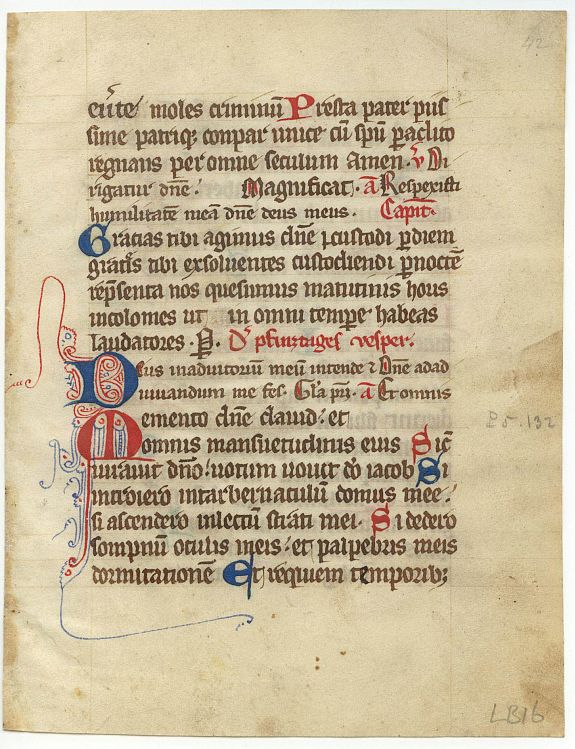 42
eunte moles criminū Presta pater piis
sime patriq; conpar unice cū spū paclito
regnans per omne seculum Amen. v Di
rigatur dne. Magnificat. a Respexisti
humilitatē meā dne deus meus. Capit.
Gracias tibi agimus dne custodi p diem
gratēs tibi exsoluentes custodiendi p noctē
repsenta nos quesumus matutinis horis
incolomes ut in omni tempe habeas
laudatores. P.
Deus inadiutoriū meū intende & Dne ad ad
iuuandum me fes. Gla pri. a Et omnis
Memento dne dauid. et
omnis mansuetudinis eius Sic
iurauit dno. uotum uouit do iacob Si
introiero intabernaculum domus mee.
si ascendero inlectum strati mei. Si dedero
sompnū oculis meis. et palpebris meis
dormitationē Et requiem temporib;
P.5.132
LB16